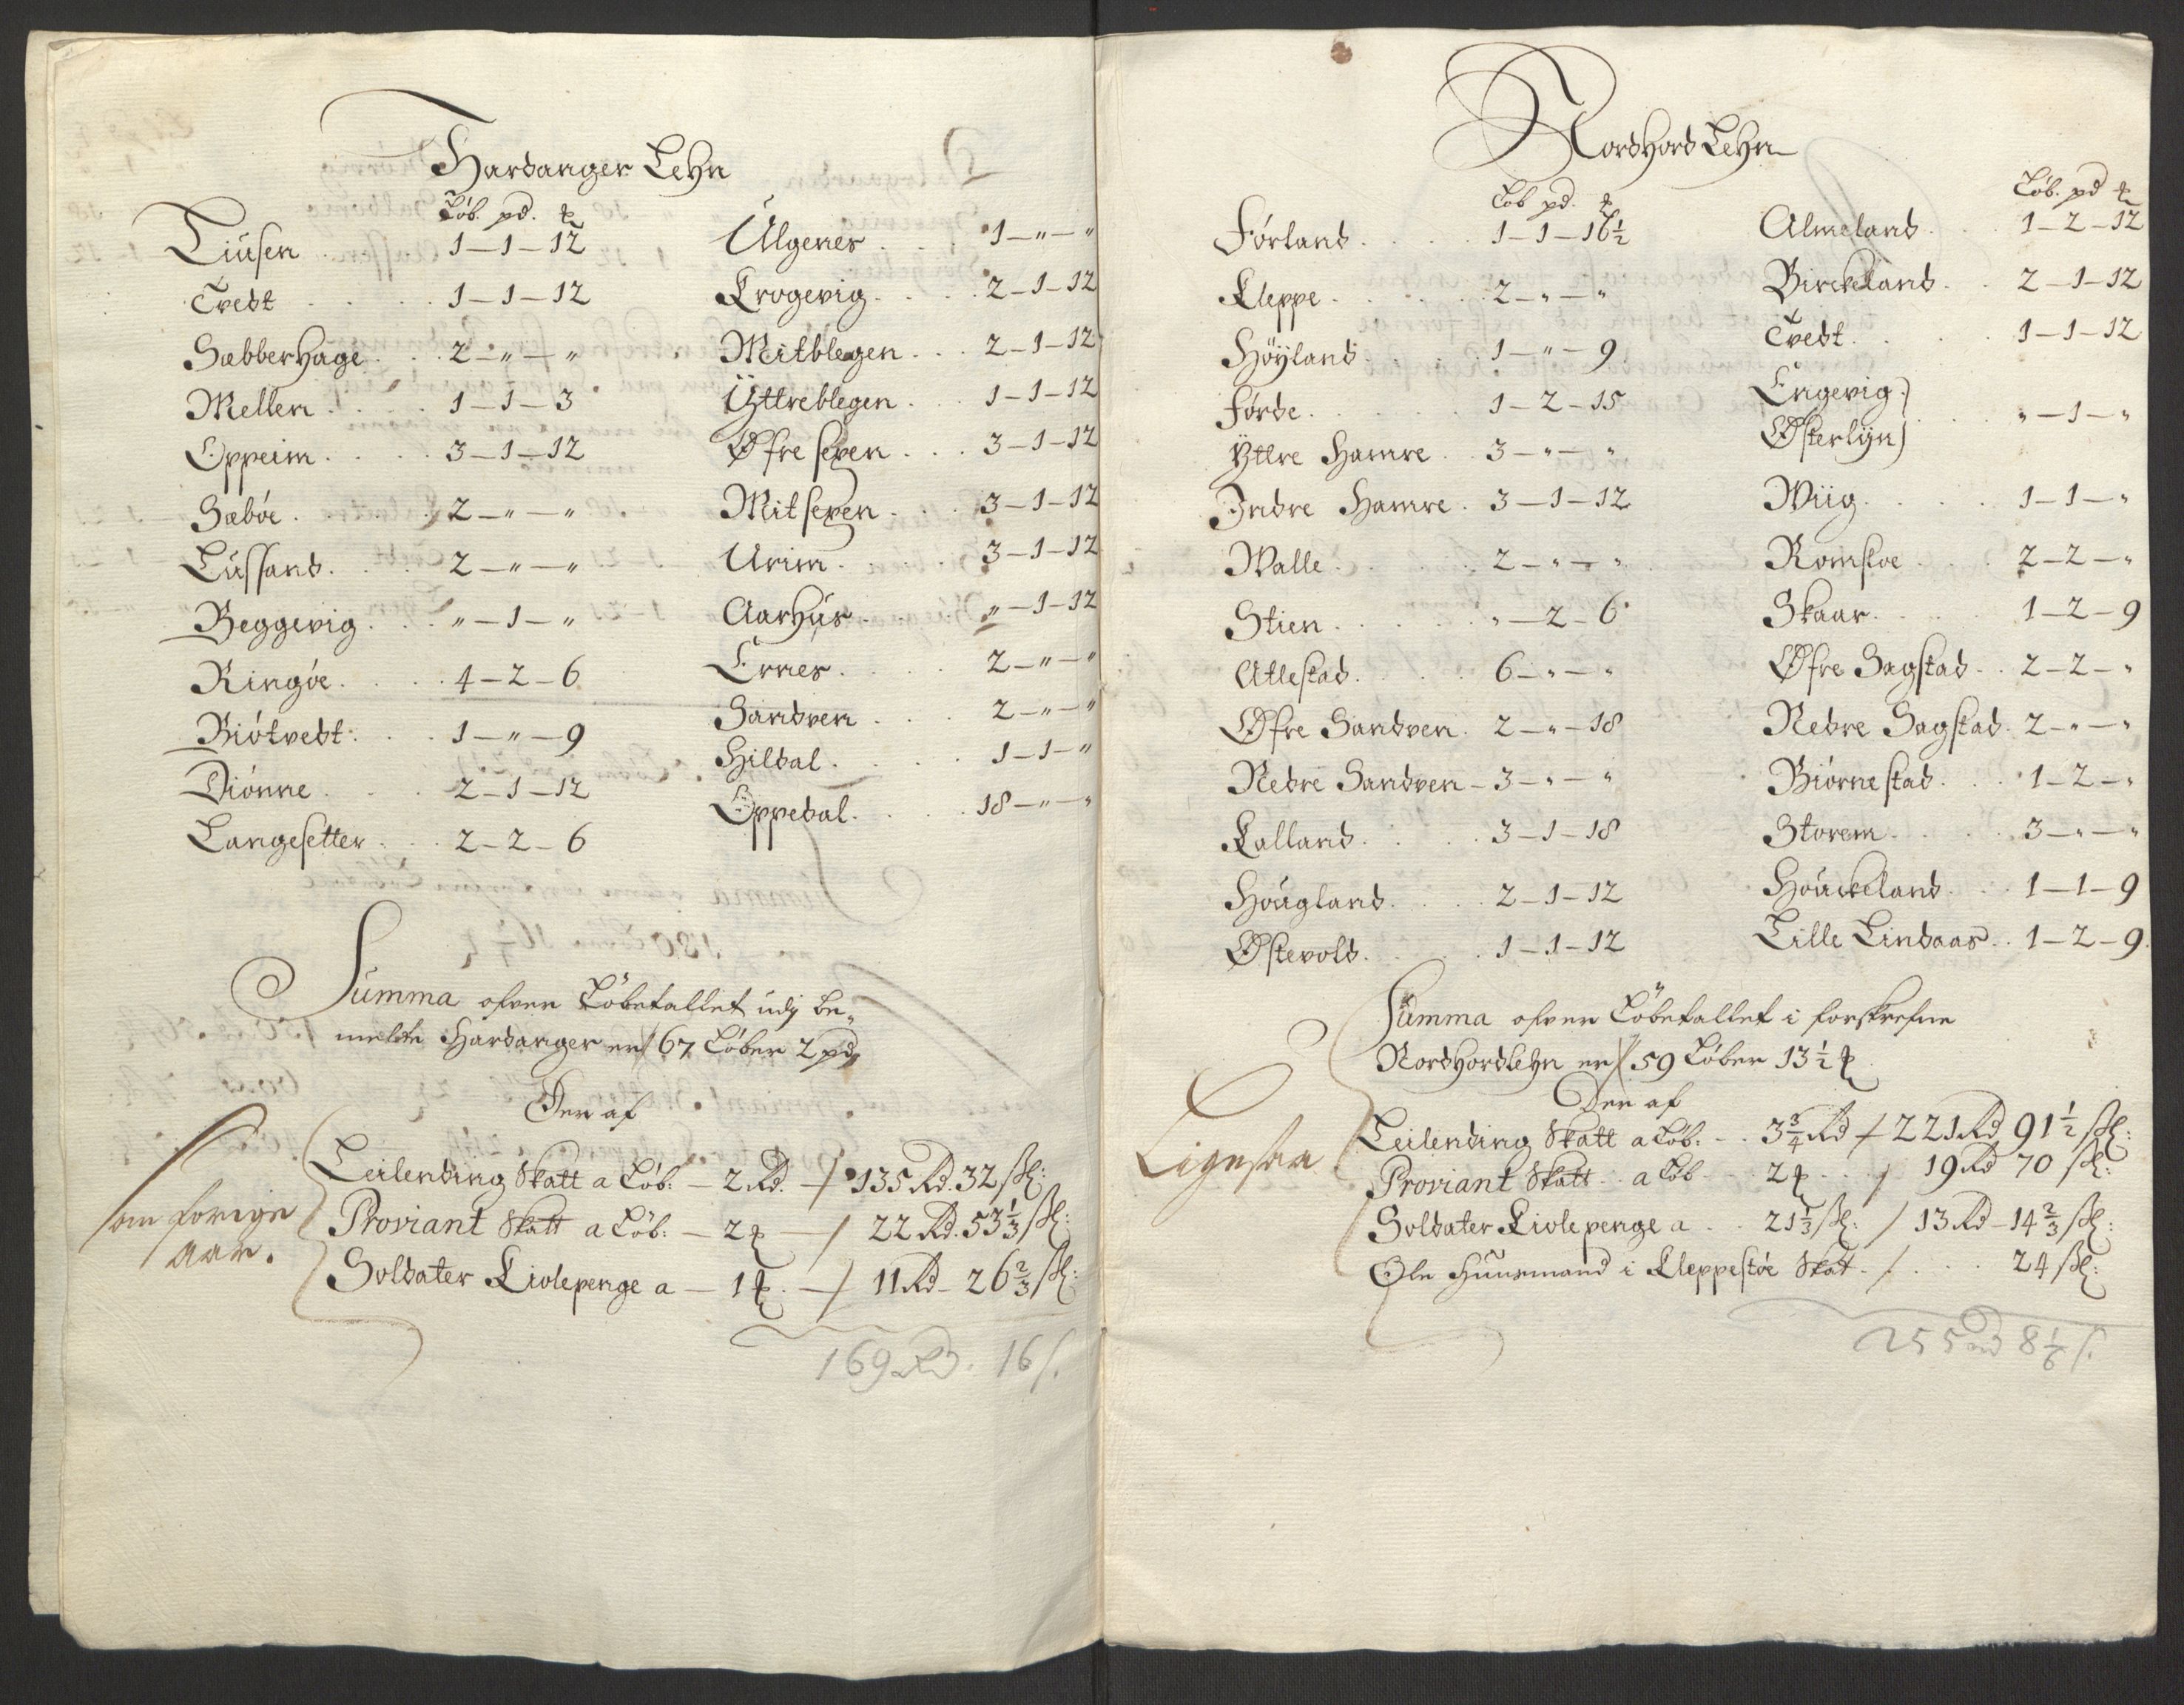 Hardanger Lehn
Löb. pd. ℔
Tiusen . 1 — 1 — 12
Tvedt . . . . . 1 — 1 — 12
SæbberHage . . 2 — „ — „
Mellen . . . . 1 — 1 — 3
Oppeim . . . . 3 — 1 — 12
Sæböe . . . . . 2 — „ — „
Lussand . . . . 2 — „ — „
Beggevig . . . „ — 1 — „
Ringöe . . . . . 4 — 2 — 6
Biötvedt . . . . 1 — „ — 9
Diönne . . . . 2 — 1 — 12
Langesetter . . . 2 — 2 — 6
Ulgenes . . . . 1 — „ — „
Krogevig . . . . 2 — 1 — 12
Mitblegen . . . 2 — 1 — 12
Ÿttreblegen . . . 1 — 1 — 12
Øfre sexen . . . 3 — 1 — 12
Mitsexen . . . 3 — 1 — 12
Urim . . . . 3 — 1 — 12
Aarhus . . . . „ — 1 — 12
Ernes . . . . 2 — „ — „
Sandven . . . . 2 — „ — „
Hildal . . . . . 1 — 1 — „
Oppedal . . . . 18 — „ — „
Summa ofver Löbetallet udj be„
melte Hardanger er / 67 Löber 2 pd
Der af
Leilending Skatt a Löb: — 2 Rd. — / 135 Rd. 32 sk:
som forige
Proviant Skatt a Löb: — 2 ℔ — / 22 Rd. 53 1/3 sk:
aar.
Soldater Kiolepenge a — 1 ℔ . — / 11 Rd — 26 2/3 sk:
169 Rd. 16 s.
NordHord Lehn
Löb pd. ℔
Förland . . . . . 1 — 1 — 16 1/2
Kleppe . . . . . . 2 — „ — „
Höÿland . . . . . 1 — „ — 9
Förde . . . . . . 1 — 2 — 15
Ÿttre Hamre . . 3 — „ — „
Indre Hamre . 3 — 1 — 12
Walle . . . . . . 2 — „ — „
Stien . . . . . . „ — 2 — 6
Atlestad . . . . . 6 — „ — „
Øfre Sandven . 2 — „ — 18
Nedre Sandven — 3 — „ — „
Kalland . . . . . 3 — 1 — 18
Hougland . . . . 2 — 1 — 12
Østevold . . . . . 1 — 1 — 12
Löb. pd ℔
Almeland . . . 1 — 2 — 12
Birckeland . . 2 — 1 — 12
Tvedt . . . . . 1 — 1 — 12
Engevig )
Østerlÿn ) . . . „ — 1 — „
Wiig . . . . . 1 — 1 — „
Romsloe . . . . 2 — 2 — „
Skaar . . . . . 1 — 2 — 9
Øfre Sagstad . . 2 — 2 — „
Nedre Sagstad . 2 — „ — „
Biörnestad . . . 1 — 2 — „
Storem . . . . . 3 — „ — „
Houckeland . . . 1 — 1 — 9
Lille Lindaas . . 1 — 2 — 9.
Summa ofver Löbetallet i forskrefne
Nordhordlehn er / 59 Löber 13 1/2 ℔
Der af
Leilending Skatt a Löb: . . 3 3/4 Rd / 221 Rd 91 1/2 sk:
Ligesaa
Proviant Skatt . . a Löb . . 2 ℔ . . . / 19 Rd 70 sk:
Soldater Kiolepenge a . . 21 1/3 sk: / 13 Rd — 14 2/3 sk:
Ole Huusmand i Kleppestöe Skat . / . . . . 24 sk:
255 Rd 8 1/6 s.